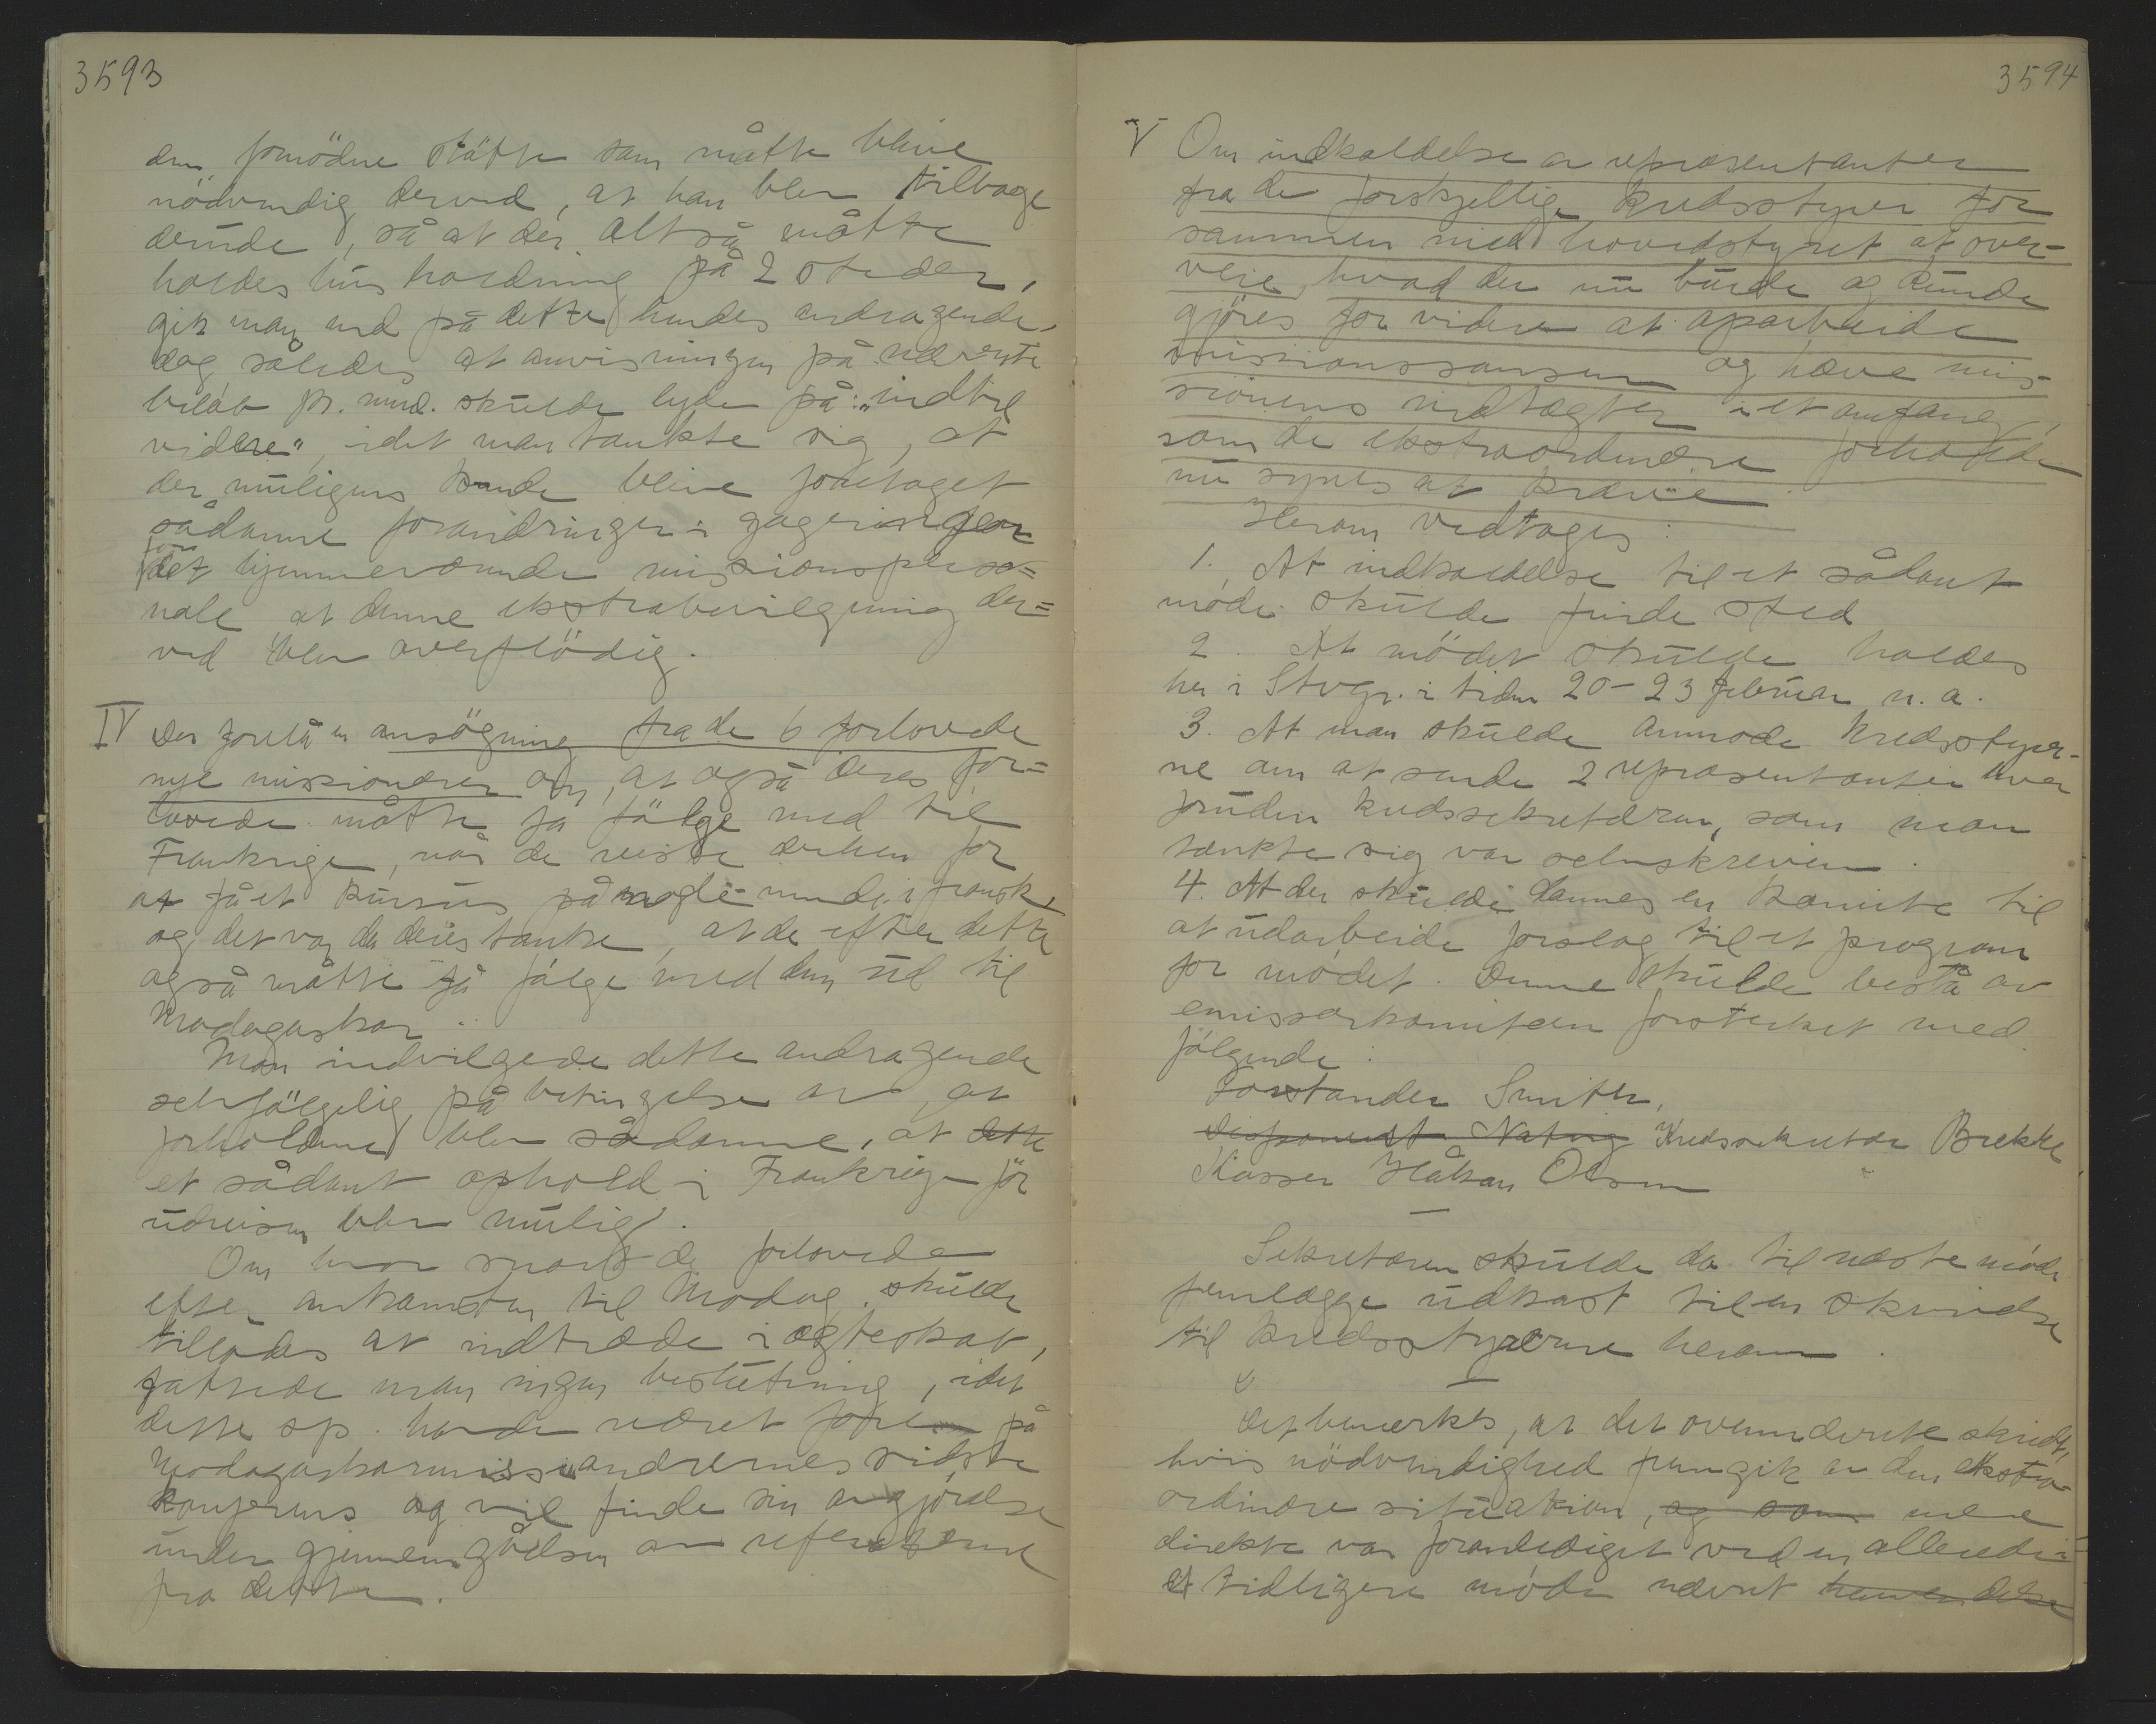 3593
den fornödne stötte som måtte blive
nödvendig derved, at han blev tilbage
derude, så at der altså måtte
holdes husholdning på 2 steder,
gik man ind på dette hendes andragende,
dog således at anvisningen på nævnte
beløb pr. mnd. skulde lyde på: "indtil
videre", idet man tænkte sig, at
der muligens kunde blive foretaget
sådanne forandringer i gagering for
for det hjemmeværende missionsperso=
nale at denne ekstrabevilgning der=
ved blev overflödig.
IV Der forelå en ansögning fra de 6 forlovede
nye missionærer om, at også deres for=
lovede måtte få fölge med til
Frankrige, når de reiste derhen for
at få et kursus på nogle mndr. i fransk,
og det var da deres tanke, at de efter dette
også måtte få fölge med dem ud til
Madagaskar.
Man indvilgede dette andragende
selvfölgelig på betingelse av, at
forholdene blev sådanne, at dette
et sådant ophold i Frankrige för
udreisen blev mulig.
Om hvor snart de forlovede
efter ankomsten til Madag. skulde
tillades at indtræde i ægteskab,
fattede man ingen beslutning, idet
dette sp. havde været fore på
Madagaskarmissionærernes sidste
konferens og vil finde sin avgjörelse
under gjennemgåelsen av referaterne
fra dette.
3594
V Om indkaldelse av repræsentanter
fra de forskjellige kredsstyrer for
sammen med hovedstyret at over-
veie, hvad der nu burde og kunde
gjöres for videre at oparbeide
missionssansen og hæve mis-
sionens indtægter i et omfang,
som de ekstraordinære forholde
nu synes at kræve.
Herom vedtoges:
1. At indkaldelse til et sådant
möde skulde finde sted
2. At mödet skulde holdes
her i Stvgr. i tiden 20-23 februar n. a.
3. At man skulde anmode kredsstyrer-
ne om at sende 2 repræsentanter hver
foruden kredssekretæren, som man
tænkte sig var selvskreven.
4. At der skulde dannes en komite til
at udarbeide forslag til et program
for mödet. Denne skulde bestå av
emissærkomiteen forsterket med
fölgende:
Forstander Smith,
Disponent Natvig Kredssekretær Brekke,
Kasser Håkon Olsen
Sekretæren skulde da til næste möde
fremlægge udkast til en skrivelse
til kredsstyrerne herom.
Det bemerkes, at det ovennævnte skridt,
hvis nödvendighed fremgik av den ekstra-
ordinære situation, og som mere
direkte var foranlediget ved en allerede i
et tidligere möde nævnt henvendelse